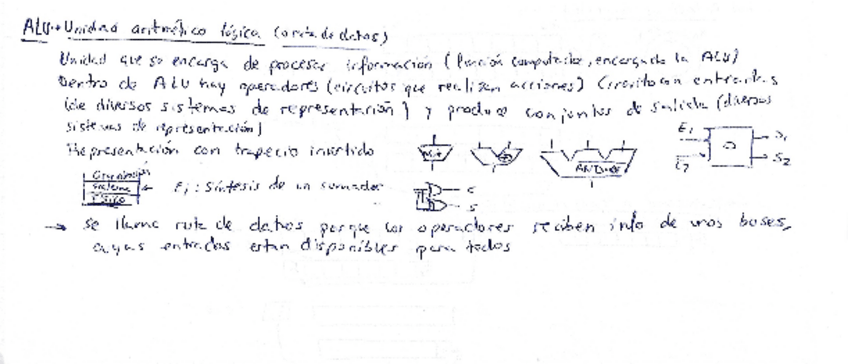 ALU → Unidad aritmético lógica (o ruta de datos)
Unidad que se encarga de procesar información (función computador, encargado la ALU)
Dentro de ALU hay operadores (circuitos que realizan acciones) Circuito con entradas
(de diversos sistemas de representación) y produce conjuntos de salida (diversos
sistemas de representación)
Representación con trapecio invertido
AND
E1 S1
E2 S2
Físico
Ej: Síntesis de un sumador
C
S
→ Se llama ruta de datos porque los operadores reciben info de unos buses,
cuyas entradas están disponibles para todos